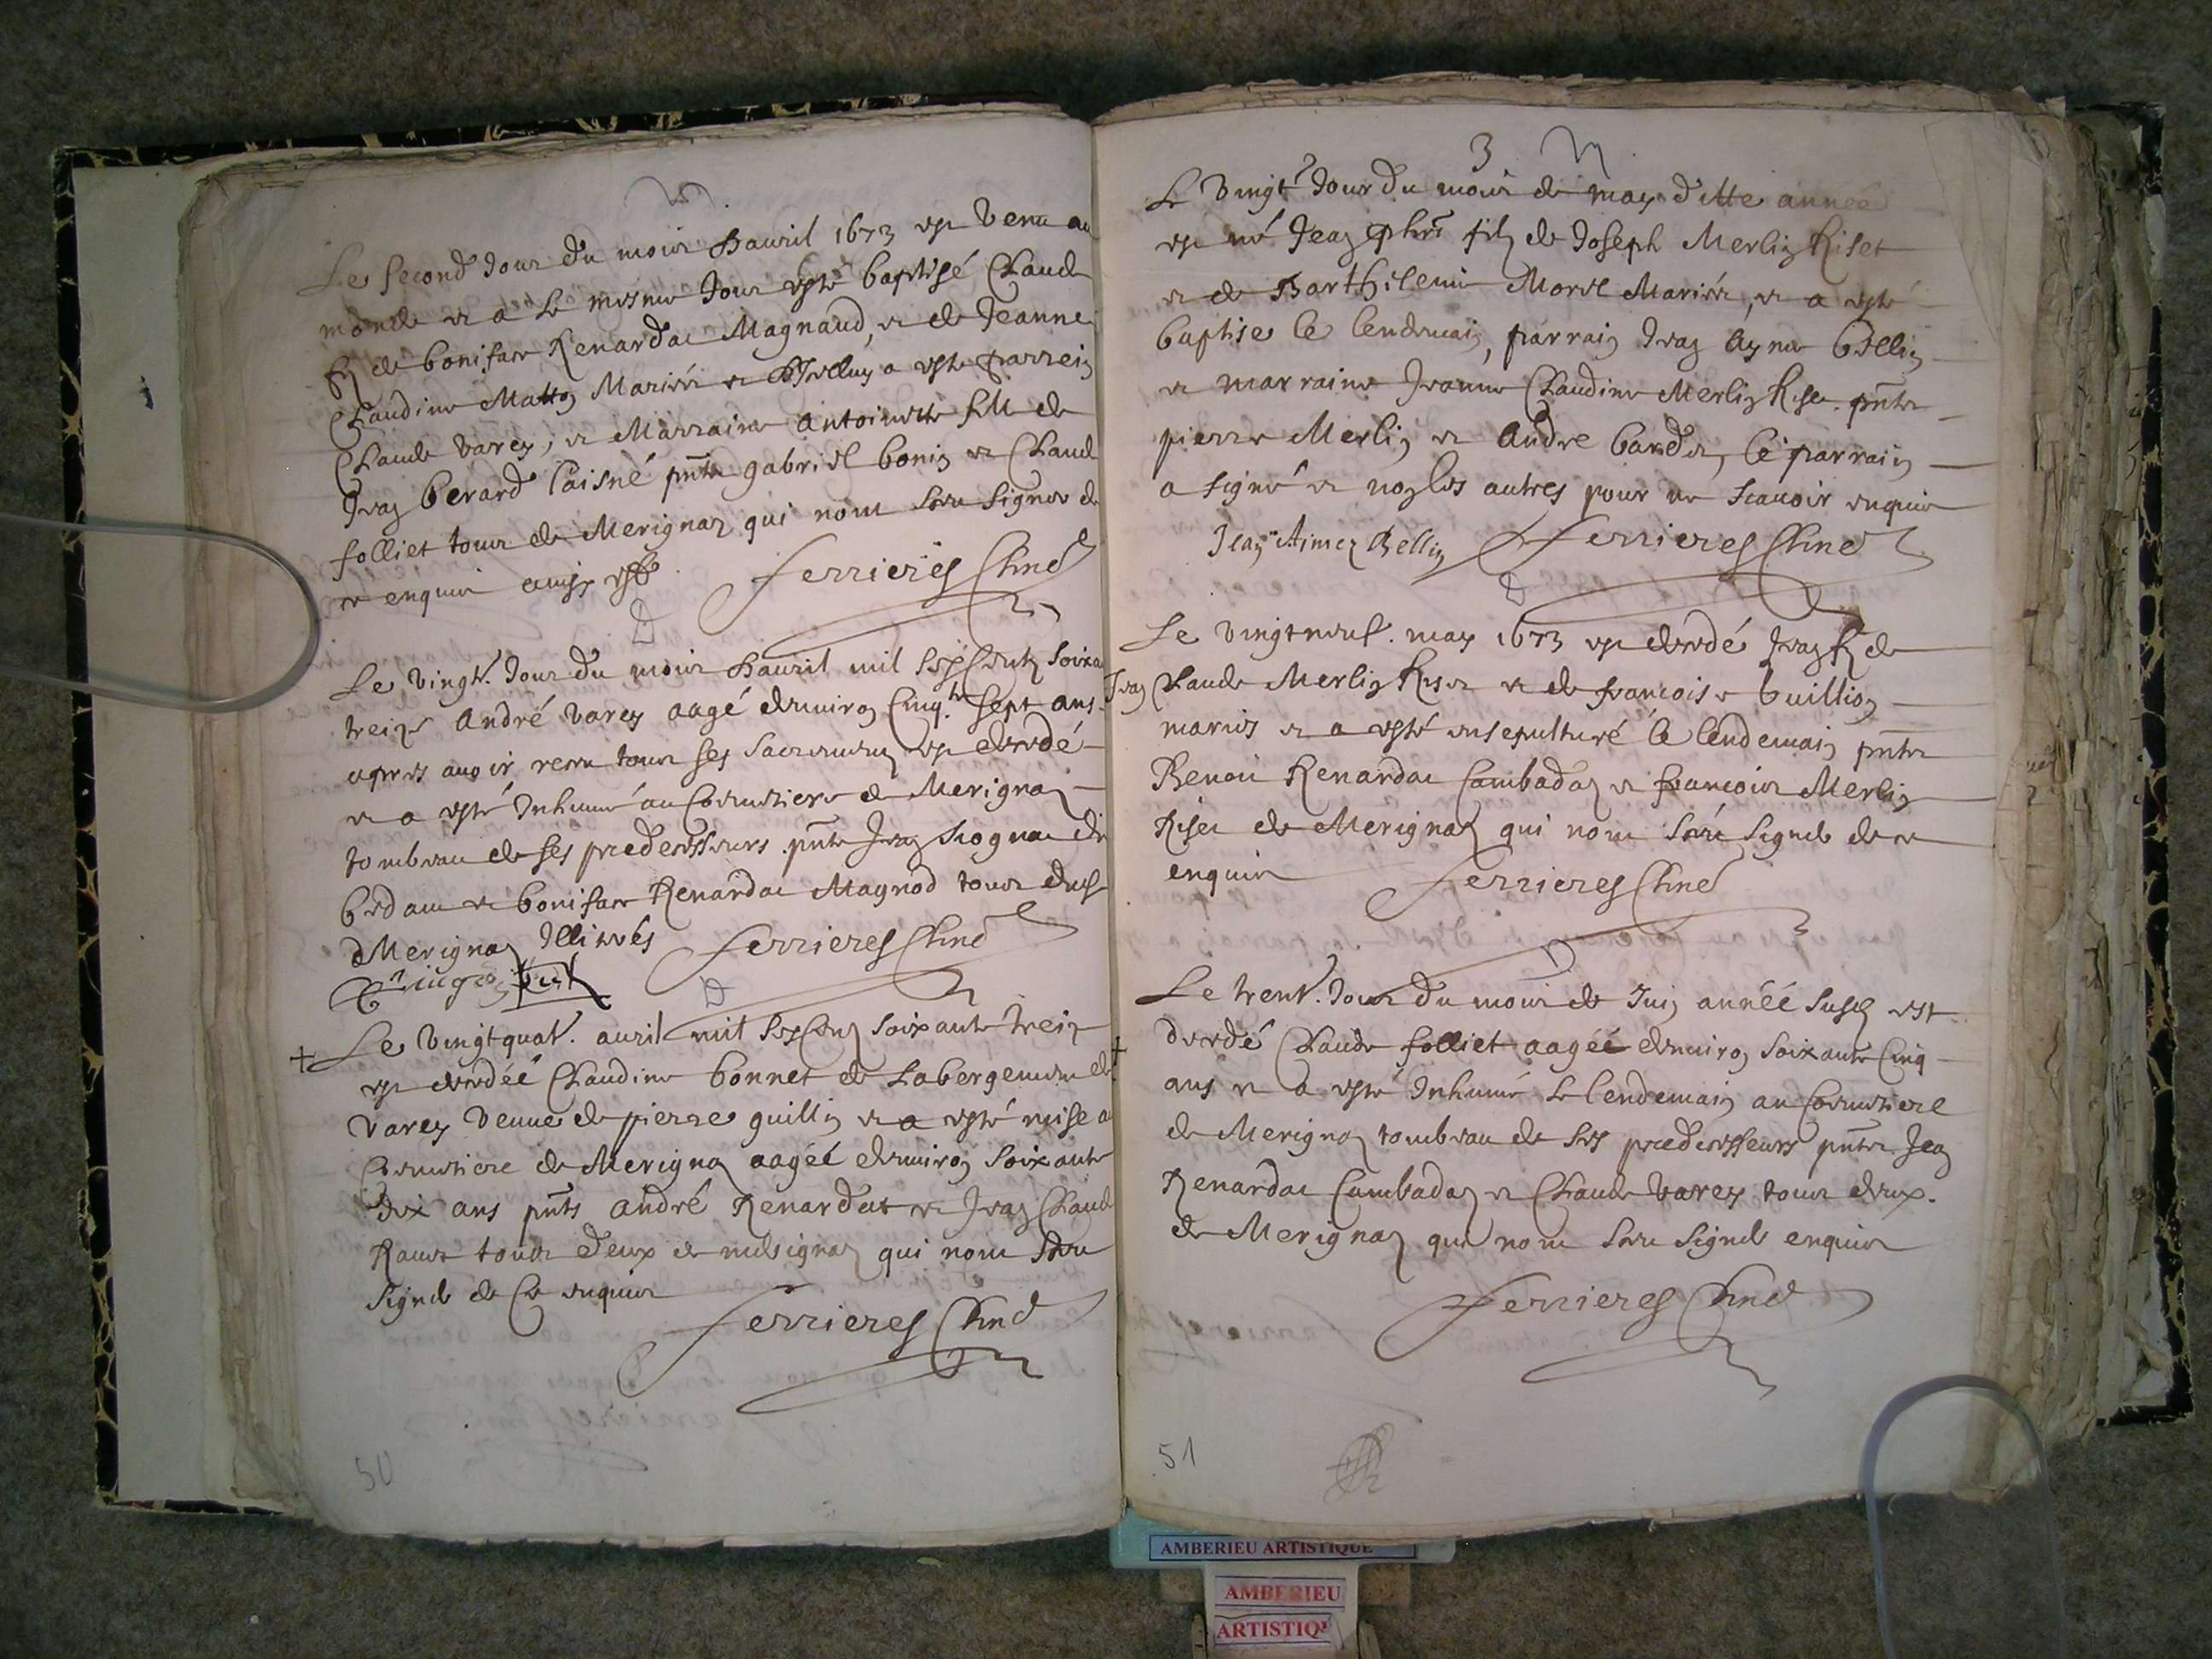 Le second Jour du mois D'auril 1673 est venu au
monde et a le mesme Jour esté baptisé Claude
fz de boniface Renardat Magnaud, et de Jeanne
Claudine Matton Mariés et D'Jcelluy a esté parrein
Claude varey, et Marraine Antoinette fille de
Jean berard laisné pnts gabriel bonin et Claude
folliet tous de Merignaz qui nont sceu signer de
ce enquis
ferrieres Curé
Le vingt. Jour du mois D'auril mil six Centz soixa
treize André varey aagé denuiron Cinq.te sept ans
apres auoir receu tous ses sacremens est decedé
et a esté Inhumé au Cemetiere de Merignaz
tombeau de ses predecesseurs pnts Jean
et boniface Renardat Magnod tous deux
d Merignaz Illiterés
ferrieres Curé
+ Le vingtquat. auril mil six Cens soixante treize
est decedée Claudine bonnet de Labergement de
varey veuue de pierre guillin et a esté mise au
Cemetiere de Merignaz aagée denuiron soixante
dix ans pnts andré Renardat et Jean Claude
tous deux de merignaz qui nont sceu
signer de Ce enquis
ferrieres Curé
50
3
Le vingt Jour du mois de may ditte année
est né Jean filz de Joseph Merlin Riset
et de Barthilemie Morel Mariés, et a esté
baptise le lendemain, parrain Jean Ayme bellin
et marraine Jeanne Claudine Merlin Rise. pnts
pierre Merlin et André bardet, le parrain
a signé et non les autres pour ne scauoir enquis
Jean Aimez Bellin ferrieres Curé
Le vingtneuf. may 1673 est decedé Jean fz de
Jean Claude Merlin Riset et de francoise buillion
mariés et a esté ensepulturé le lendemain pnts
Benoit Renardat Cambadaz et francois Merlin
Riset de Merignaz qui nont sceu signer de ce
enquis
ferrieres Curé
+ Le trent. Jour du mois de Juin année susd est
decedé Claude folliet aagée denuiron soixante Cinq
ans et a esté Inhumé le lendemain au Cemetiere
de Merignaz tombeau de ses predecesseurs pnts Jean
Renardat Cambadaz et Claude varey tous deux
de Merignaz qui nont sceu signer enquis
ferrieres Curé
51
AMBERIEU ARTISTIQUE
AMBERIEU
ARTISTIQU